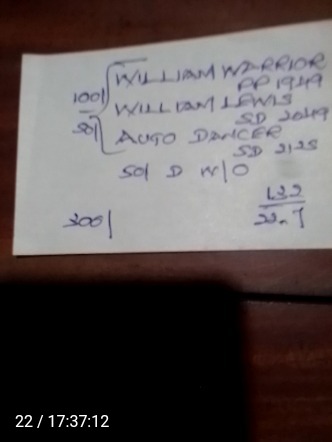 WILLIAM WARRIOR
100/ PP 1949
WILLIAM LEWIS
50/ SD 2049
AUTO DANCER
SD 2125
50/ D W/O
300/ 132
22-7
22 / 17:37:12